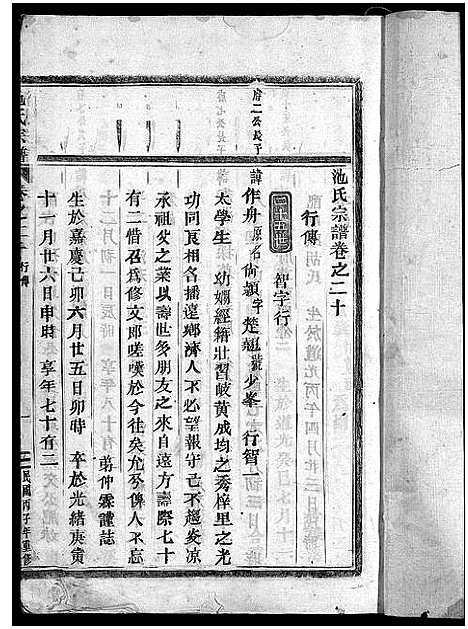 池氏宗譜卷之二十
行傳
二十五世
智字行
唐二公長子
諱作舟原名尚穎字楚翹號少峯行智一
太學生幼嫺經籍壯習岐黃成均之秀梓里之光
功同良相名播遐鄉濟人不必望報守己不趨炎凉
承祖父之業以壽世多朋友之來自遠方壽際七十
有二惜召為修文郎嗟嘆於今往矣允矣俾人不忘
剪仲霖謹誌
生於嘉慶己卯六月廿五日卯時卒於光緒庚寅
十一月廿六日申時享年七十有二
氏宗譜
行傳
一
民國丙子年重修